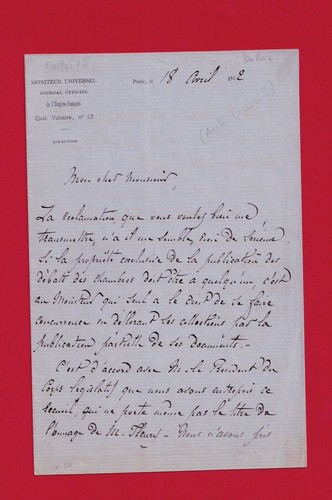 MONITEUR UNIVERSEL
JOURNAL OFFICIEL
de l'Empire français
Quai Voltaire, n° 13
DIRECTION
Paris, le 18 Avril 1862
Mon cher Monsieur,
La réclamation que vous voulez bien me
transmettre, n'a il me semble, rien de sérieux.
Si la propriété exclusive de la publication des
débats des chambres doit être à quelqu'un, c'est
au Moniteur qui seul a le droit de se faire
concurrence en déflorant ses collections par la
publication partielle de ses documents.
C'est d'accord avec M. le Président du
Corps législatif que nous avons entrepris ce
recueil, qui ne porte même pas le titre de
l'ouvrage de M. Fleury - Nous n'avons pris